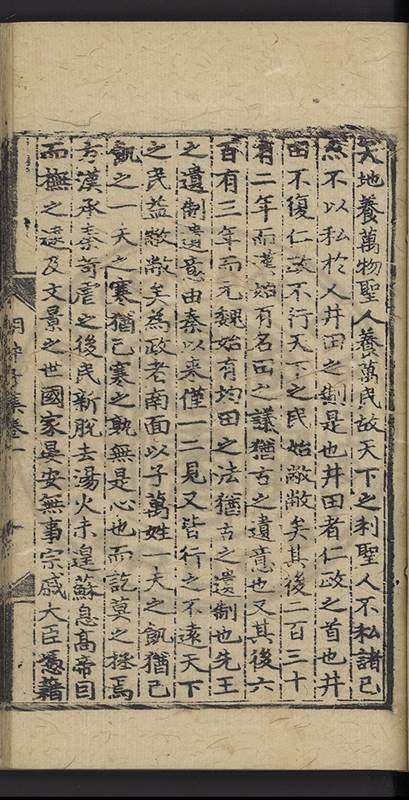 天地養萬物聖人養萬民故天下之利聖人不私諸己
亦不以私於人井田之制是也井田者仁政之首也井
田不復仁政不行天下之民始敝敝矣其後二百三十
有二年而漢始有名田之議猶古之遺意也又其後六
百有三年而元魏始有均田之法猶古之遺制也先王
之遺制遺意由秦以來僅一二見又皆行之不遠天下
之民益敝敝矣為政者南面以子萬姓一夫之飢猶己
飢之一夫之寒猶己寒之孰無是心也而訖莫之拯焉
方漢承秦苛虐之後民新脫去湯火未遑蘇息高帝因
而撫之逮及文景之世國家晏安無事宗戚大臣憑藉
胡仲子集卷一